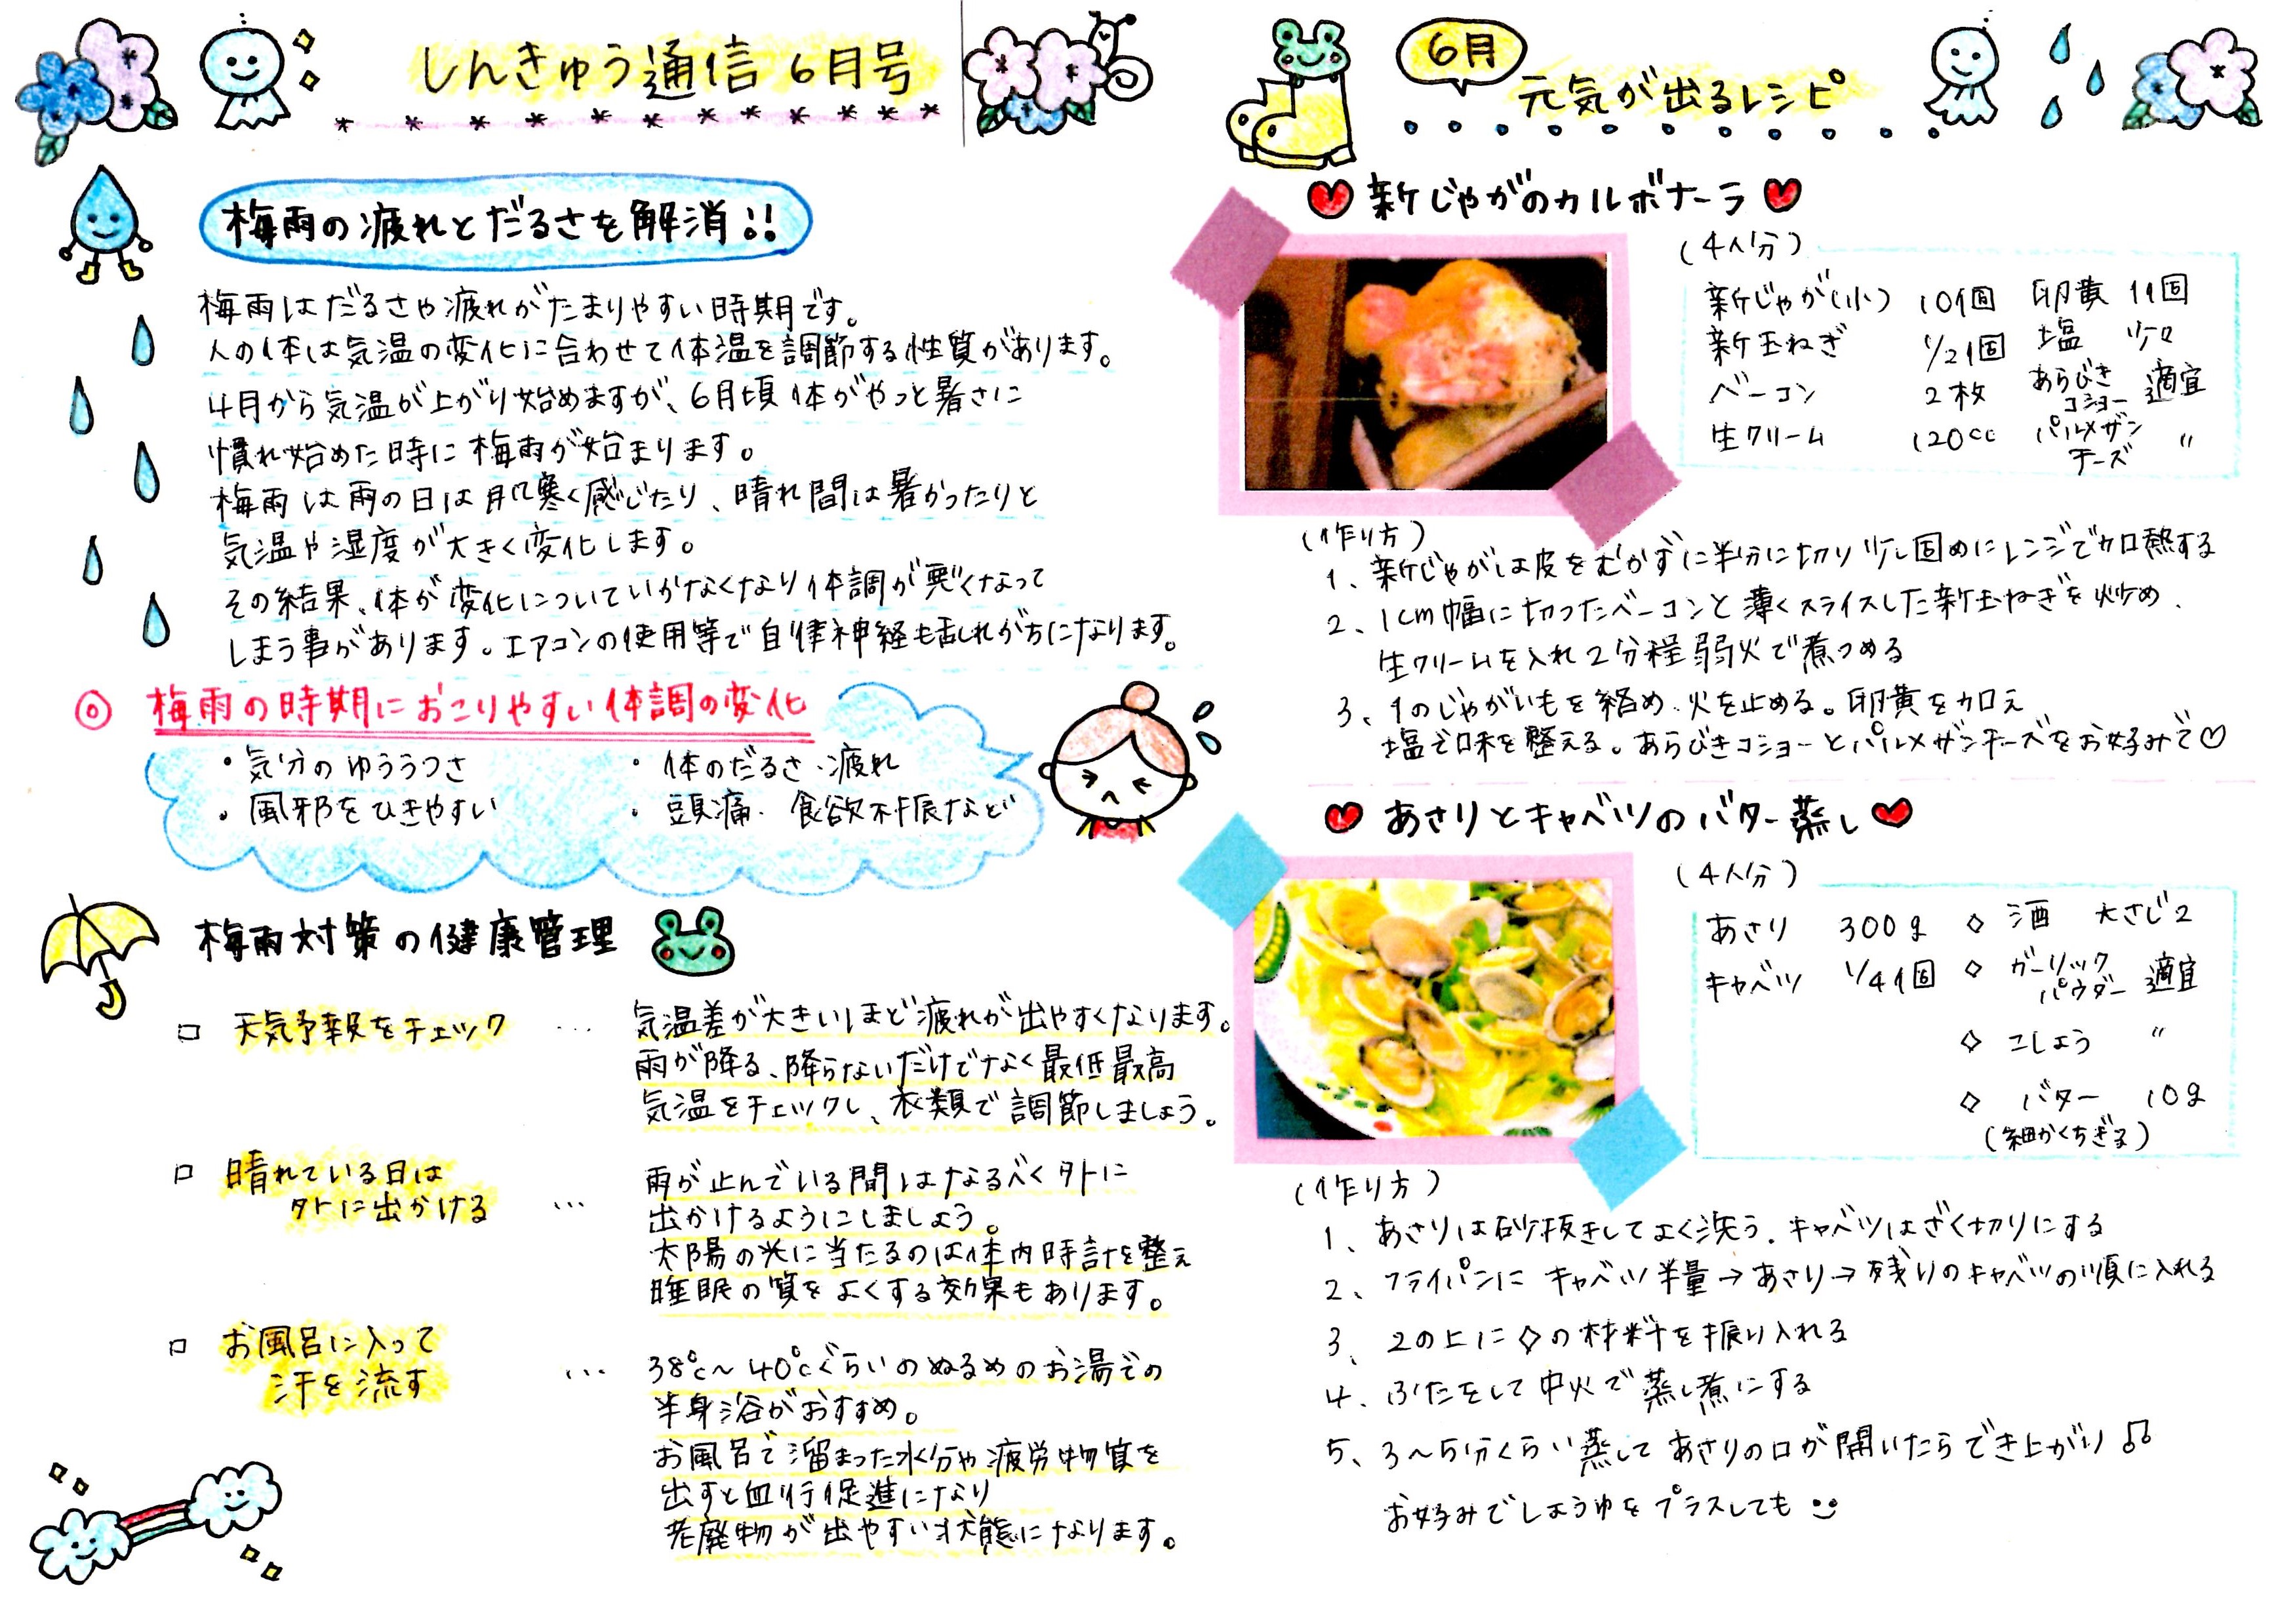 しんきゅう通信 6月号
梅雨の疲れとだるさを解消!!
梅雨はだるさや疲れがたまりやすい時期です。
人の体は気温の変化に合わせて体温を調節する性質があります。
4月から気温が上がり始めますが、6月頃体がやっと暑さに
慣れ始めた時に梅雨が始まります。
梅雨は雨の日は肌寒く感じたり、晴れ間は暑かったりと
気温や湿度が大きく変化します。
その結果、体が変化についていかなくなり体調が悪くなって
しまう事があります。エアコンの使用等で自律神経も乱れがちになります。
◎ 梅雨の時期におこりやすい体調の変化
・気分のゆううつさ ・体のだるさ・疲れ
・風邪をひきやすい ・頭痛・食欲不振など
梅雨対策の健康管理
□ 天気予報をチェック …
気温差が大きいほど疲れが出やすくなります。
雨が降る、降らないだけでなく最低最高
気温をチェックし、衣類で調節しましょう。
□ 晴れている日は
外に出かける …
雨が止んでいる間はなるべく外に
出かけるようにしましょう。
太陽の光に当たるのは体内時計を整え
睡眠の質をよくする効果もあります。
□ お風呂に入って
汗を流す …
38℃〜40℃ぐらいのぬるめのお湯での
半身浴がおすすめ。
お風呂で溜まった水分や疲労物質を
出すと血行促進になり
老廃物が出やすい状態になります。
6月
元気が出るレシピ
♥ 新じゃがのカルボナーラ ♥
(4人分)
新じゃが(小) 10個 卵黄 1個
新玉ねぎ 1/2個 塩 少々
ベーコン 2枚 あらびきコショー 適宜
生クリーム 120cc パルメザンチーズ 〃
(作り方)
1、新じゃがは皮をむかずに半分に切り少し固めにレンジで加熱する
2、1cm幅に切ったベーコンと薄くスライスした新玉ねぎを炒め、
生クリームを入れ2分程弱火で煮つめる
3、1のじゃがいもを絡め、火を止める。卵黄を加え
塩で味を整える。あらびきコショーとパルメザンチーズをお好みで♡
♥ あさりとキャベツのバター蒸し ♥
(4人分)
あさり 300g ◇ 酒 大さじ2
キャベツ 1/4個 ◇ ガーリックパウダー 適宜
◇ こしょう 〃
◇ バター 10g
(細かくちぎる)
(作り方)
1、あさりは砂抜きしてよく洗う。キャベツはざく切りにする
2、フライパンに キャベツ半量→あさり→残りのキャベツの順に入れる
3、2の上に◇の材料を振り入れる
4、ふたをして中火で蒸し煮にする
5、3〜5分くらい蒸してあさりの口が開いたらでき上がり♫
お好みでしょうゆをプラスしても